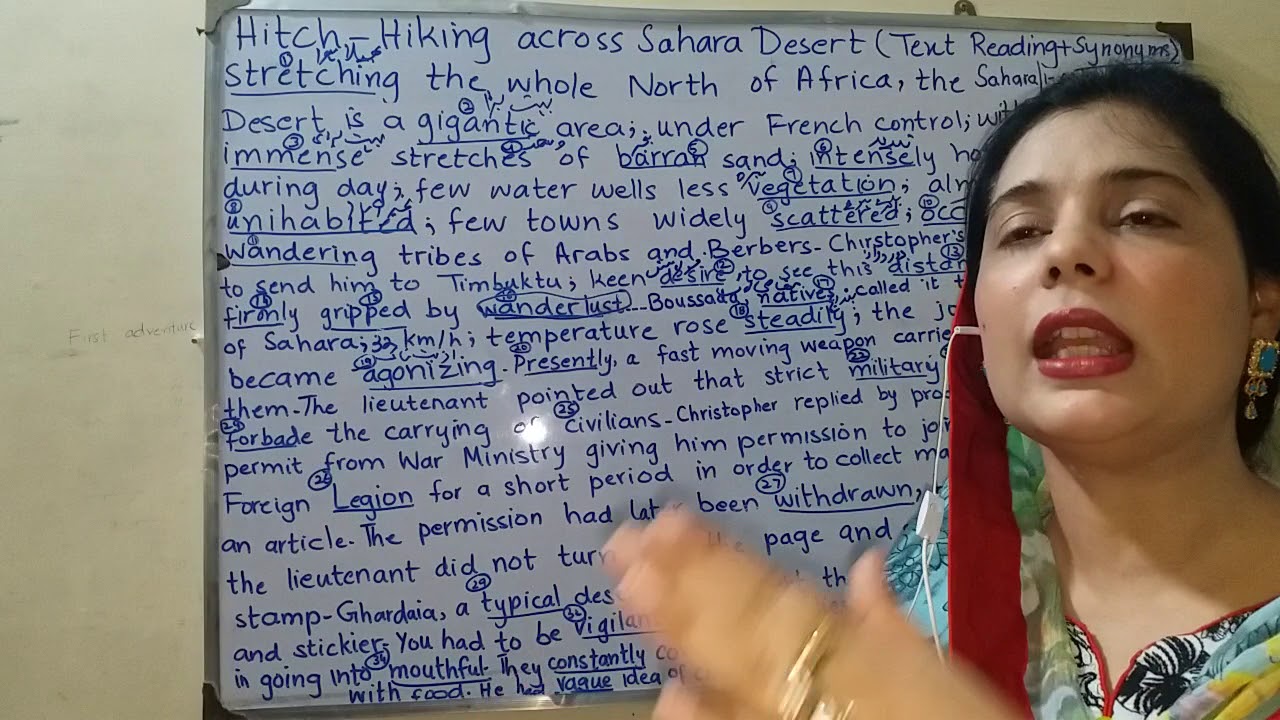 Hitch-Hiking across Sahara Desert (Text Reading+Synonyms)
① stretching the whole North of Africa, the Sahara
Desert is a ② gigantic area; under French control; with
③ immense stretches ④ of barran ⑤ sand; intensely ⑥
during day; few water wells less vegetation ⑦;
⑧ unihabited; few towns widely ⑨ scattered; ⑩
⑪ wandering tribes of Arabs and Berbers- Chirstopher's
to send him to Timbuktu; keen desire ⑫ to see this ⑬
⑭ firmly ⑮ gripped by ⑯ wanderlust ... Boussada natives ⑰; called it
of Sahara; 32 km/h; temperature rose ⑱ steadily; the
became ⑲ agonizing. ⑳ Presently, a fast moving weapon
them-The lieutenant pointed out that strict ㉒ military
forbade the carrying of ㉕ civilians-Christopher replied by
permit from War Ministry giving him permission to join
Foreign ㉖ Legion for a short period in order to collect
an article. The permission had been ㉗ withdrawn,
the lieutenant did not turn page and
stamp-Ghardaia, a ㉙ typical
and stickier; You had to be ㉜
in going into mouthful. They constantly
with food. He had vague idea of
First adventure